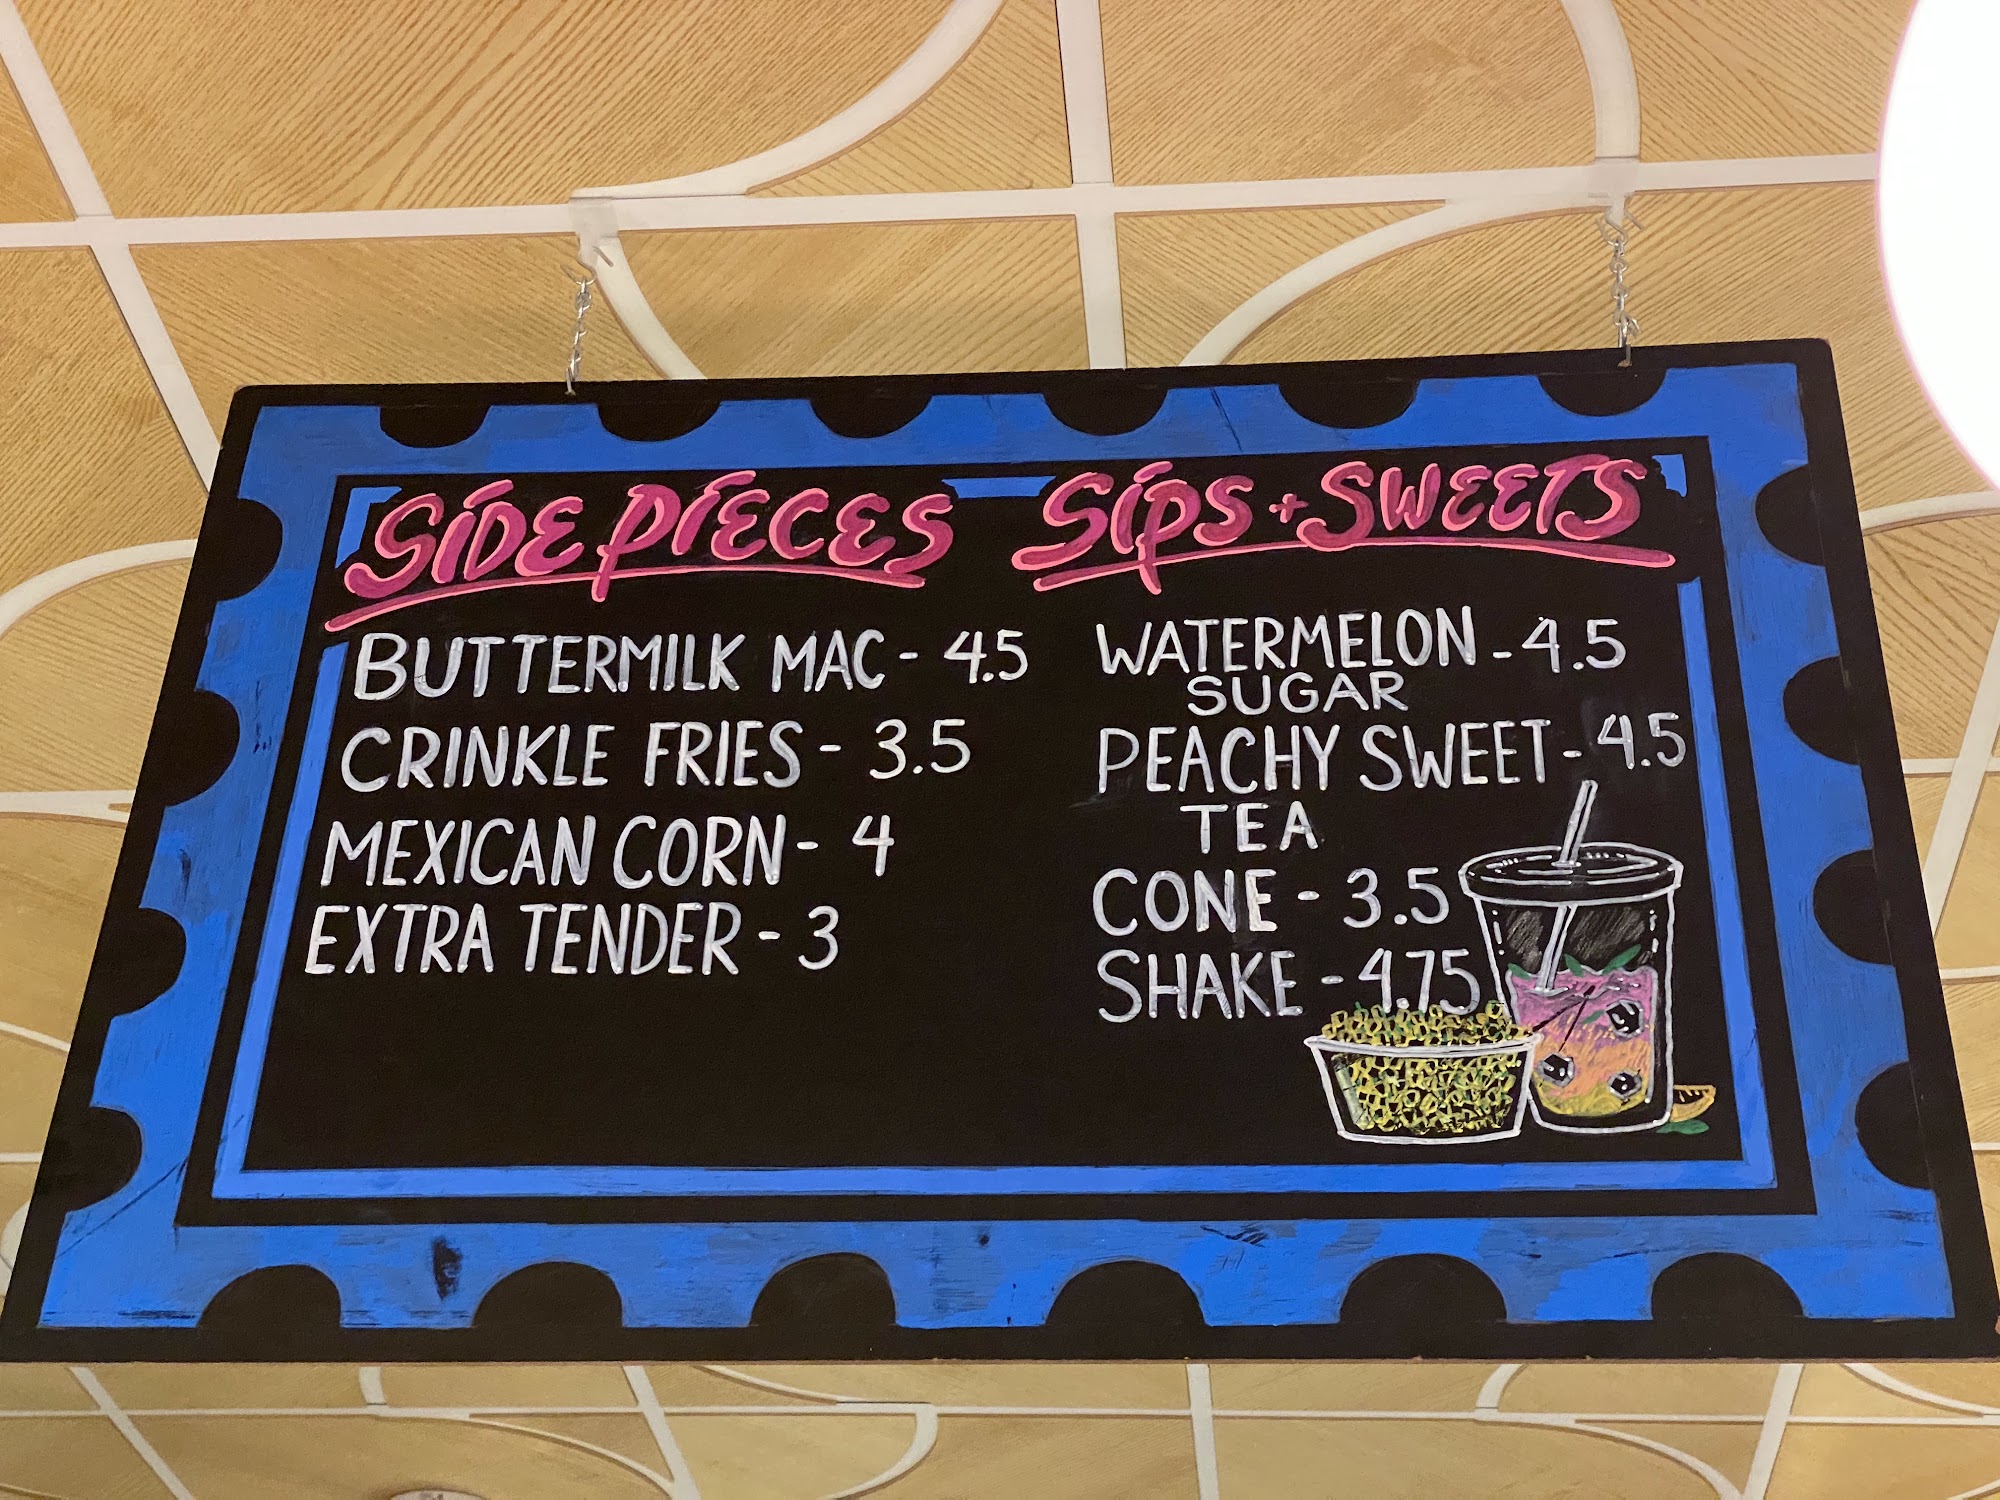 SIDE PIECES
BUTTERMILK MAC - 4.5
CRINKLE FRIES - 3.5
MEXICAN CORN - 4
EXTRA TENDER - 3
SIPS + SWEETS
WATERMELON - 4.5
SUGAR
PEACHY SWEET - 4.5
TEA
CONE - 3.5
SHAKE - 4.75